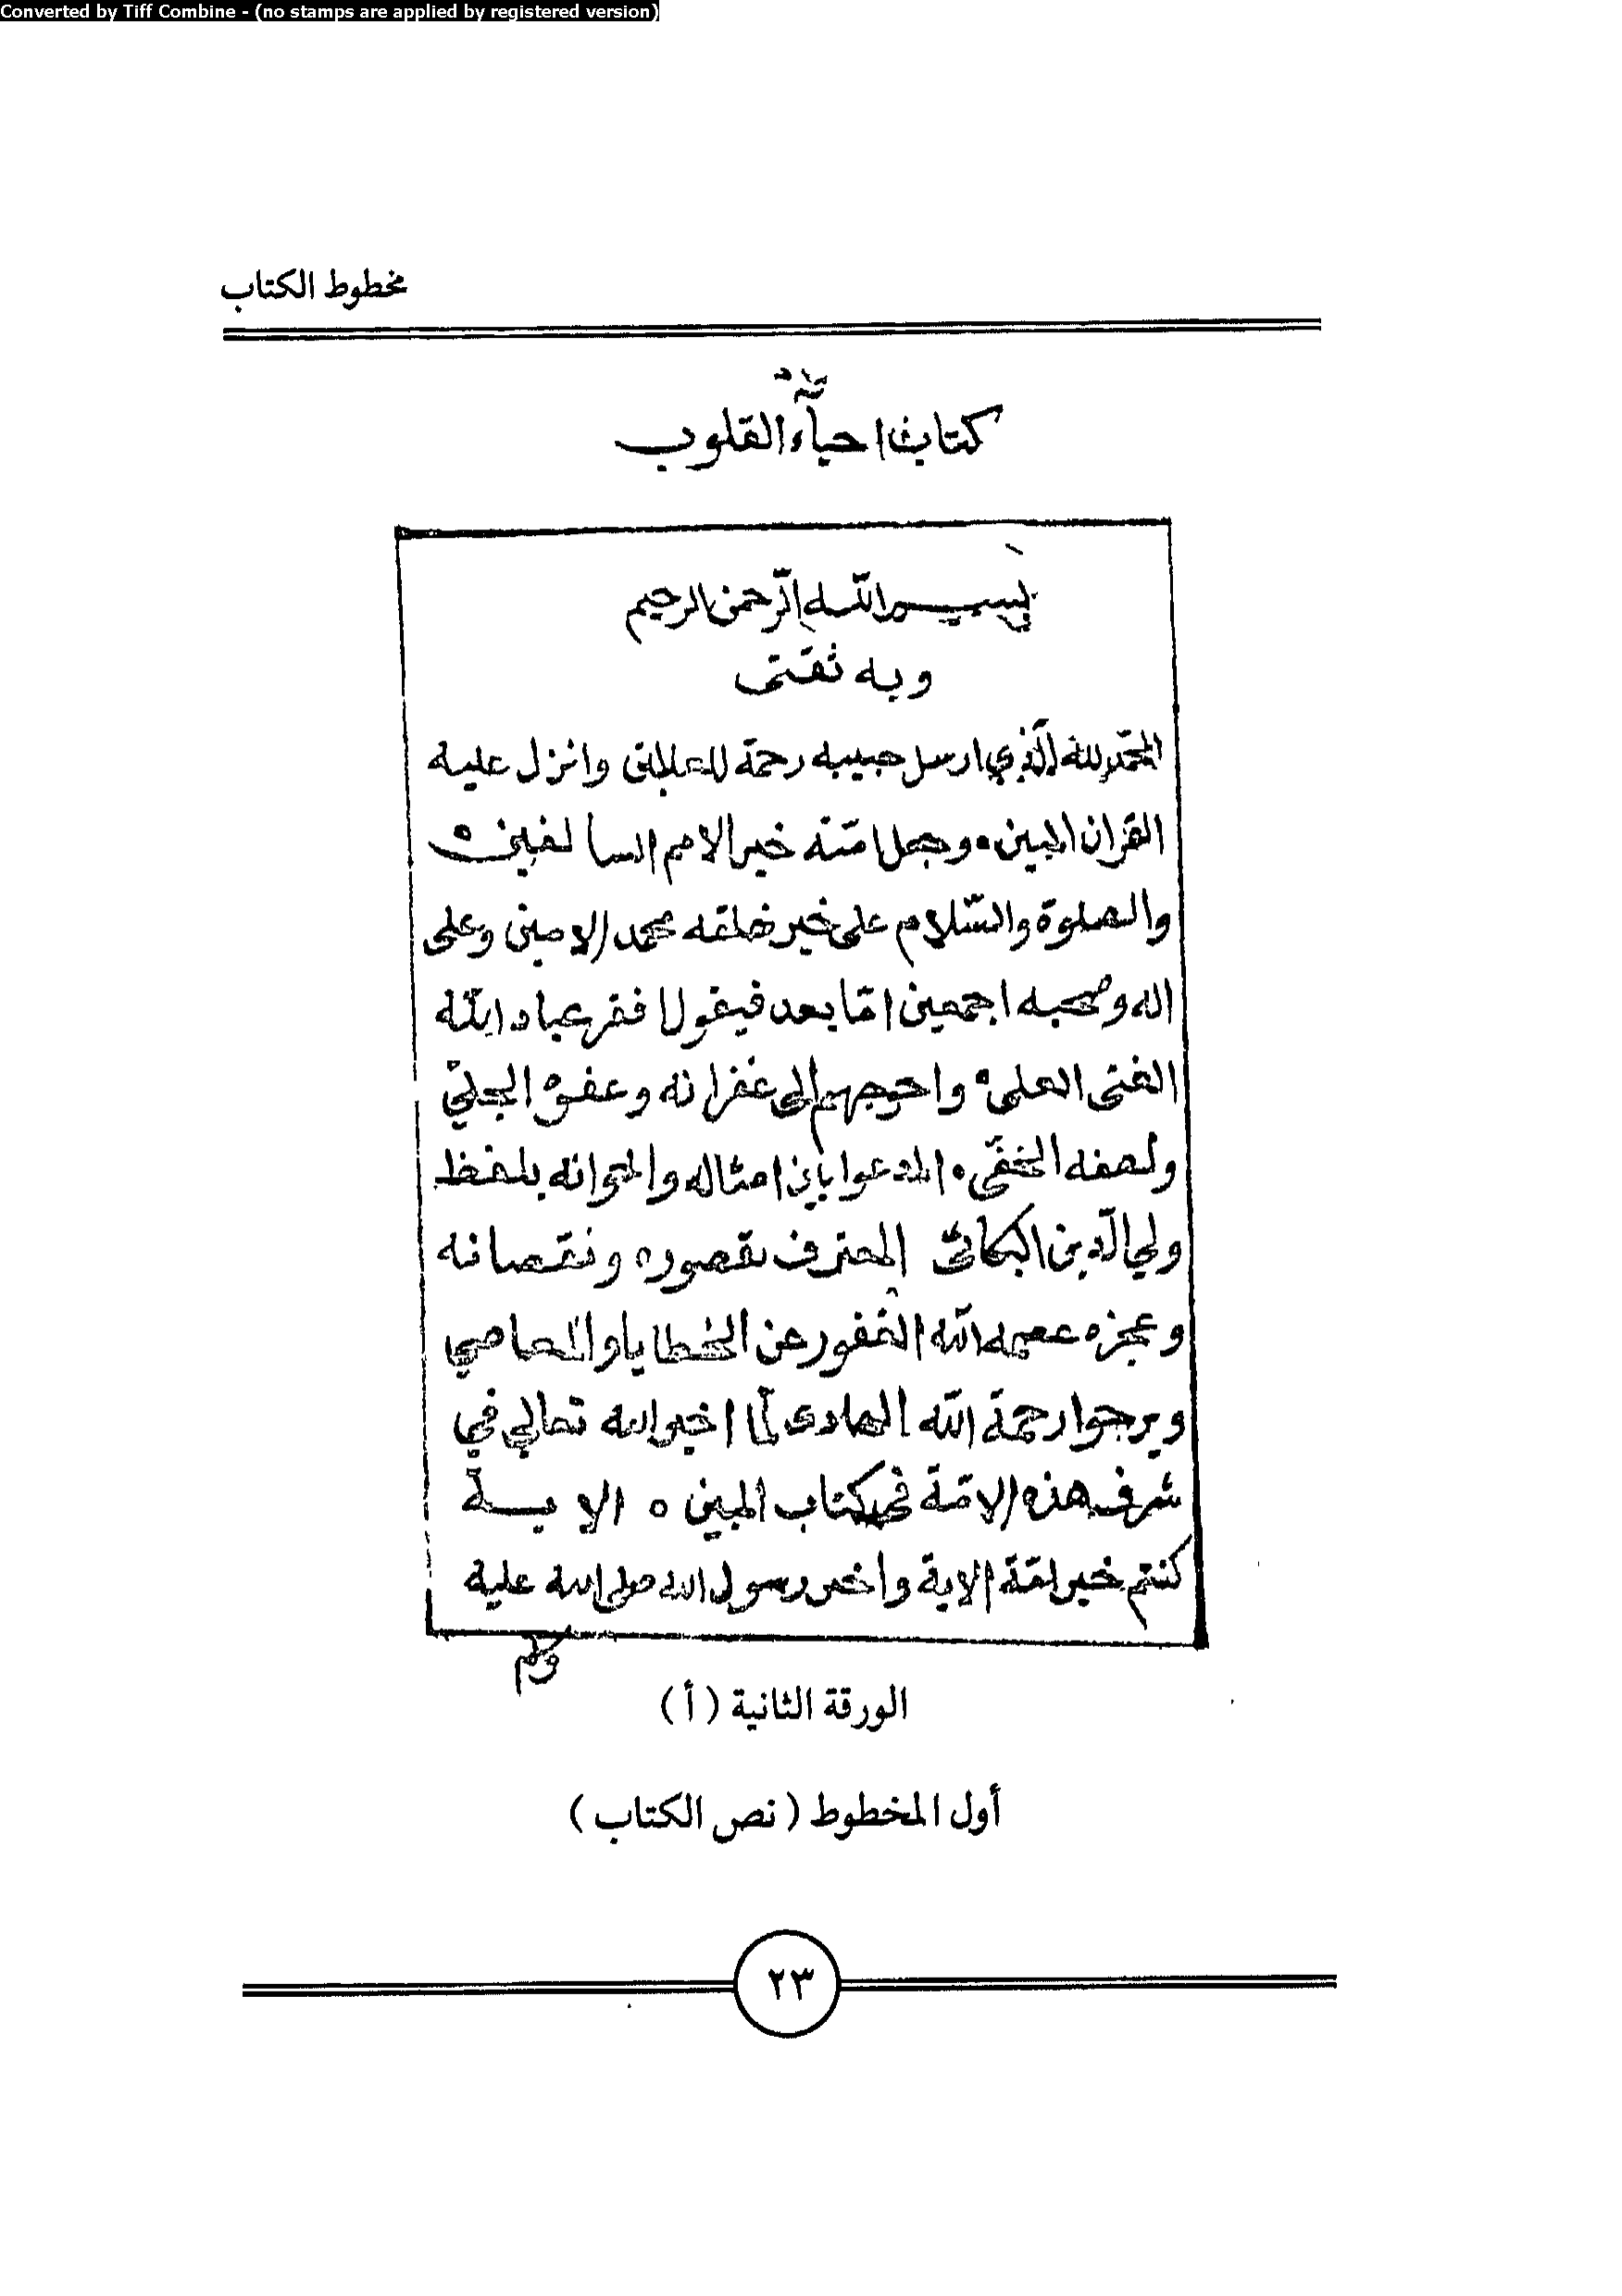 Converted by Tiff Combine - (no stamps are applied by registered version)
مخطوط الكتاب
كتاب احيآء القلوب
بسم الله الرّحمن الرحيم
وبه ثقتى
الحمد لله الّذي ارسل حبيبه رحمة للعالمين وانزل عليه
القران المبين وجعل امّته خير الامم السالفين
والصلوة والسّلام على خير خلقه محمد الامين وعلى
اله وصحبه اجمعين امّا بعد فيقول افقر عباد الله
الغنى العلى واحوجهم الى غفرانه وعفوه الجليّ
ولطفه الخفى المدعوا بين امثاله واخوانه بلفظ
ولي الّدين البكائى المعترف بقصوره ونقصانه
وعجزه عصمه الله الغفور عن الخطايا والمعاصي
ويرجوا رحمة الله الهادى لمّا اخبر الله تعالي في
شرف هذه الامّة فى كتاب المبين ه الايـة
كنتم خير امّة الاية واخبر رسول الله صلى الله عليه
وسلم
الورقة الثانية (أ)
أول المخطوط (نص الكتاب)
٢٣